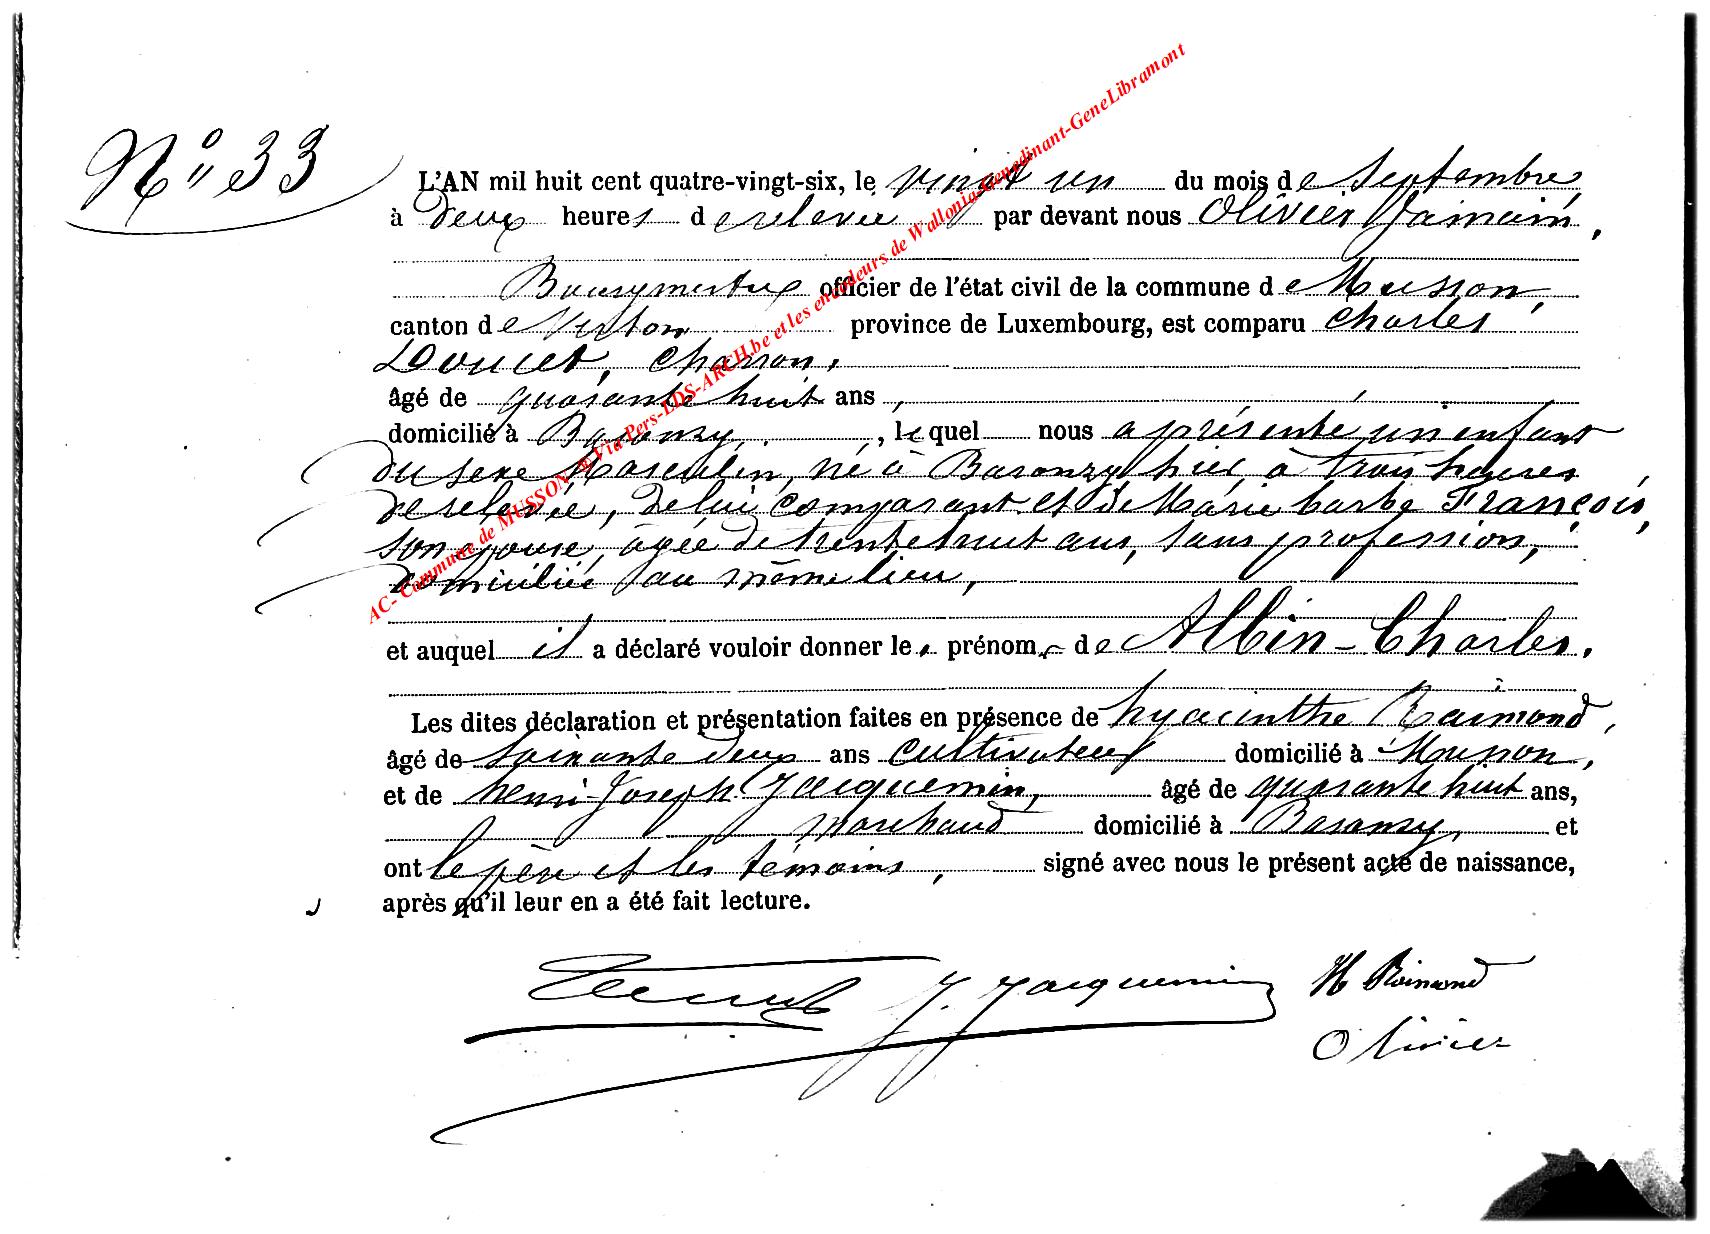 N° 33
L'AN mil huit cent quatre-vingt-six, le vingt un du mois de Septembre
à Deux heures de relevée par devant nous Olivier Jainain,
Bourgmestre officier de l'état civil de la commune de Musson,
canton de Virton province de Luxembourg, est comparu Charles
Doucet, charron,
âgé de quarante huit ans,
domicilié à Baranzy, lequel nous a présenté un enfant
du sexe Masculin, né à Baranzy hier, à trois heures
de relevée, De lui comparant et de Marie barbe François,
son épouse, agée de trente huit ans, sans profession,
domiciliée au même lieu,
et auquel il a déclaré vouloir donner les prénoms de Albin-Charles.
Les dites déclaration et présentation faites en présence de hyacinthe Raimond,
âgé de soixante deux ans cultivateur domicilié à Musson,
et de henri-Joseph Jacquemin, âgé de quarante huit ans,
marchand domicilié à Baranzy, et
ont le père et les témoins, signé avec nous le présent acte de naissance,
après qu'il leur en a été fait lecture.
J. Jacquemin H Raimond
Olivier
AC- Commune de MUSSON @ Via Pers-LDS-ARCH.be et les encodeurs de Wallonia-Genedinant-GeneLibramont